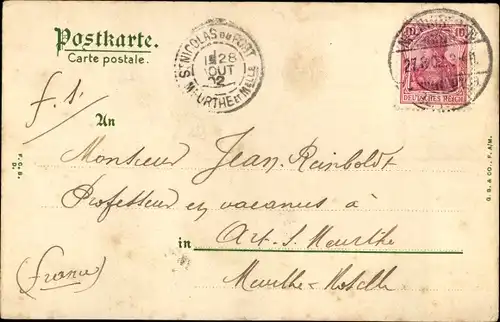 Postkarte.
Carte postale.
ST NICOLAS DU PORT
28
OUT
02
MEURTHE ET MELLE
10 10
DEUTSCHES REICH
27.8.02
f. s.
An
Monsieur Jean Reinboldt
Professeur en vacances à
in Art. s. Meurthe
(France)
Meurthe-Moselle
G. B. & CO.